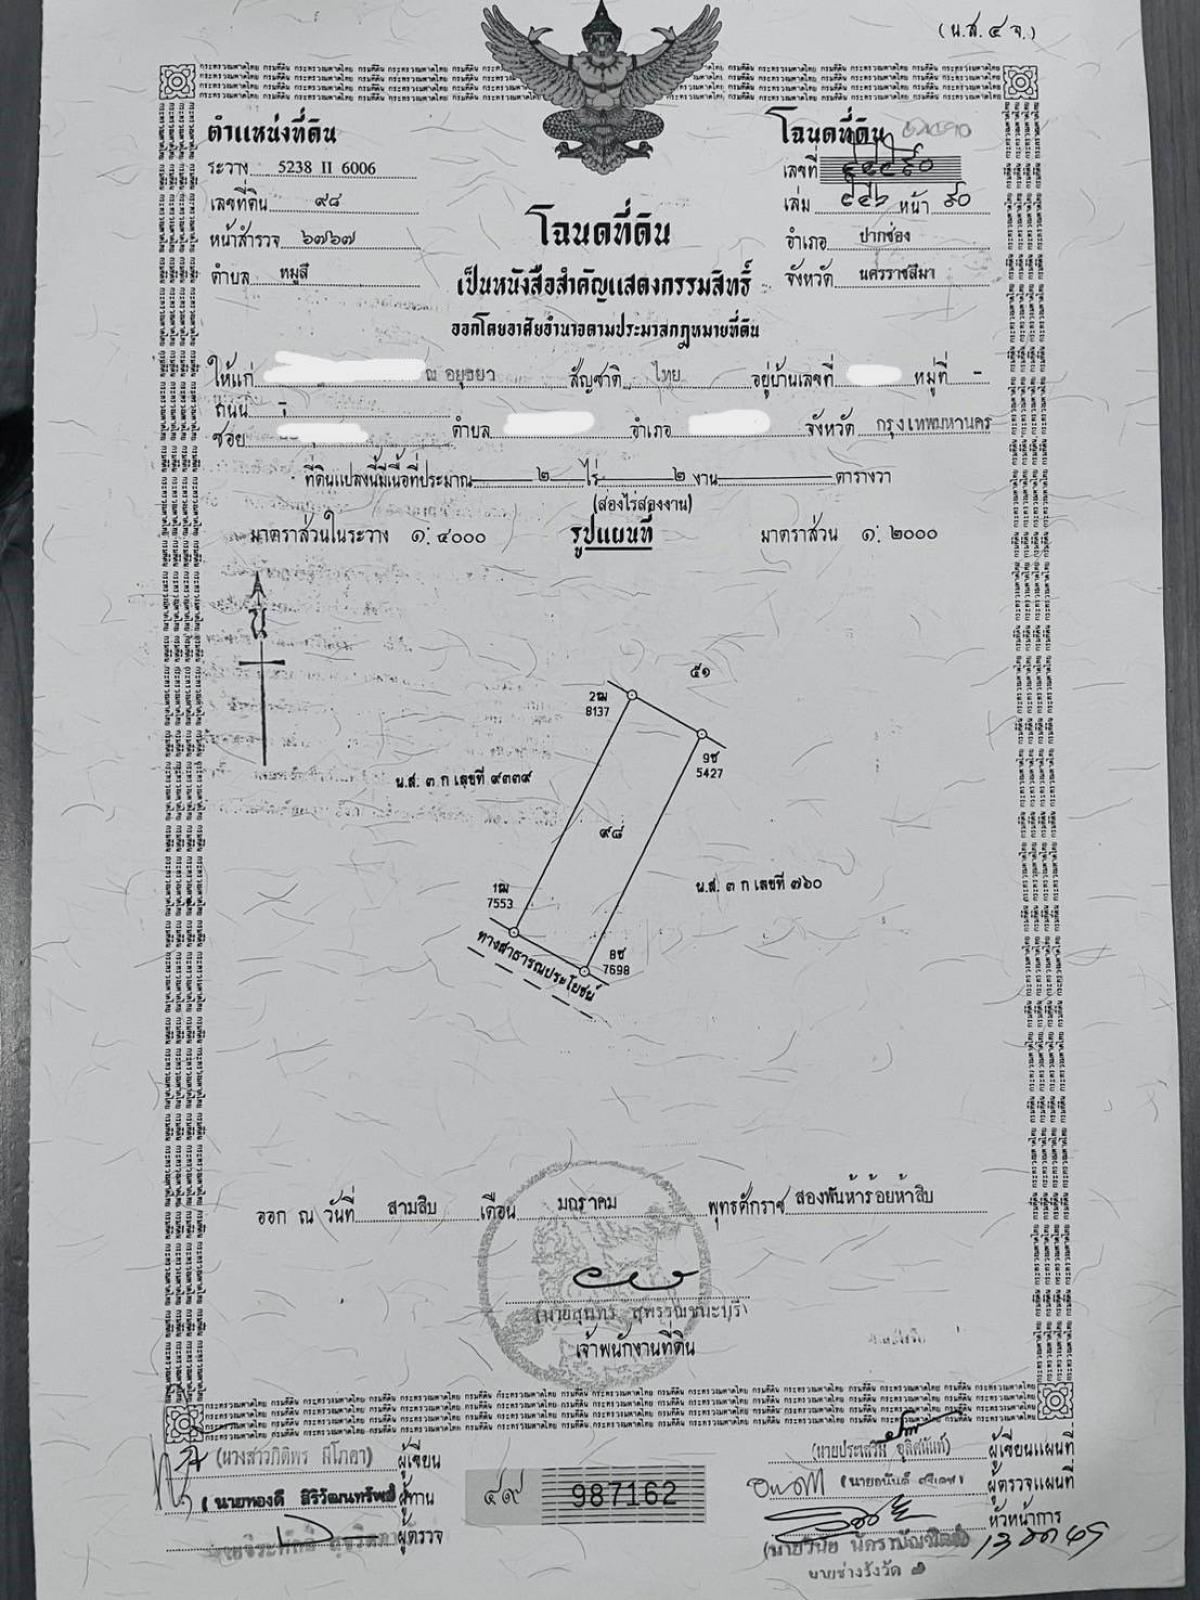 (น.ส.๔ จ.)
ตำแหน่งที่ดิน
โฉนดที่ดิน
ระวาง 5238 II 6006
เลขที่
เลขที่ดิน ๙๘
เล่ม หน้า ๙๐
หน้าสำรวจ ๖๗๖๗
โฉนดที่ดิน
อำเภอ ปากช่อง
ตำบล หมูสี
เป็นหนังสือสำคัญแสดงกรรมสิทธิ์
จังหวัด นครราชสีมา
ออกโดยอาศัยอำนาจตามประมวลกฎหมายที่ดิน
ให้แก่ ณ อยุธยา สัญชาติ ไทย อยู่บ้านเลขที่ หมู่ที่ -
ถนน -
ซอย ตำบล อำเภอ จังหวัด กรุงเทพมหานคร
ที่ดินแปลงนี้มีเนื้อที่ประมาณ ๒ ไร่ ๒ งาน ตารางวา
(สองไร่สองงาน)
มาตราส่วนในระวาง ๑:๔๐๐๐ รูปแผนที่ มาตราส่วน ๑:๒๐๐๐
น
๕๑
2ฒ
8137
9ช
5427
น.ส. ๓ ก เลขที่ ๙๓๓๙
๙๘
น.ส. ๓ ก เลขที่ ๗๖๐
1ฒ
7553
ทางสาธารณประโยชน์
8ช
7698
ออก ณ วันที่ สามสิบ เดือน มกราคม พุทธศักราช สองพันห้าร้อยห้าสิบ
(นายสุนทร สุพรรณชนะบุรี)
เจ้าพนักงานที่ดิน
(นางสาวกิติพร มีโภคา) ผู้เขียน
(นายทองดี สิริวัฒนทรัพย์) ผู้ทาน
ผู้ตรวจ
๔๙ 987162
ผู้เขียนแผนที่
ผู้ตรวจแผนที่
หัวหน้าการ
นายช่างรังวัด ๗